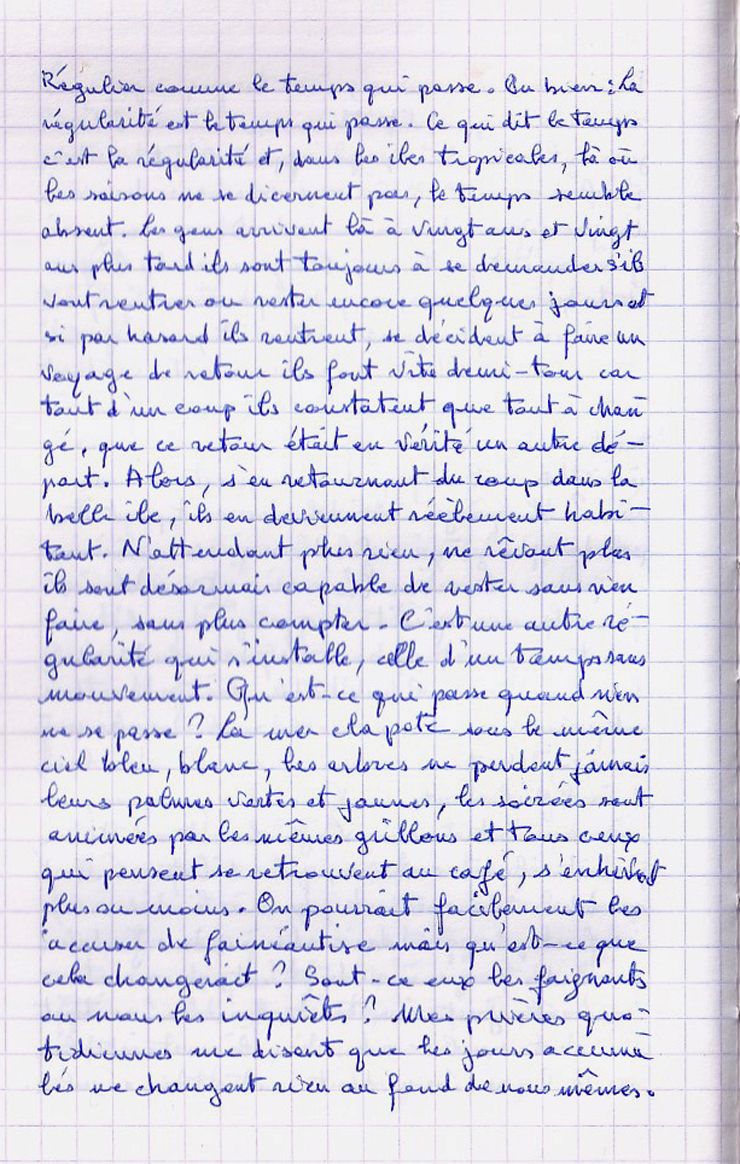 Régulier comme le temps qui passe. Ou bien : La
régularité est le temps qui passe. Ce qui dit le temps
c'est la régularité et, dans les iles tropicales, là où
les saisons ne se dicernent pas, le temps semble
absent. Les gens arrivent là à vingt ans et vingt
ans plus tard ils sont toujours à se demander s'ils
vont rentrer ou rester encore quelques jours et
si par hasard ils rentrent, se décident à faire un
voyage de retour ils font vite demi-tour car
tout d'un coup ils constatent que tout à chan
gé, que ce retour était en vérité un autre dé-
part. Alors, s'en retournant du coup dans la
belle ile, ils en deviennent réellement habi-
tant. N'attendant plus rien, ne rêvant plus
ils sont désormais capable de rester sans rien
faire, sans plus compter. C'est une autre ré-
gularité qui s'installe, celle d'un temps sans
mouvement. Qu'est-ce qui passe quand rien
ne se passe ? La mer clapote sous le même
ciel bleu, blanc, les arbres ne perdent jamais
leurs palmes vertes et jaunes, les soirées sont
animées par les mêmes grillons et tous ceux
qui pensent se retrouvent au café, s'enivrent
plus ou moins. On pourrait facilement les
accuser de fainéantise mais qu'est-ce que
cela changerait ? Sont-ce eux les faignants
ou nous les inquiets ? Mes prières quo-
tidiennes me disent que les jours accumu
lés ne changent rien au fond de nous mêmes.